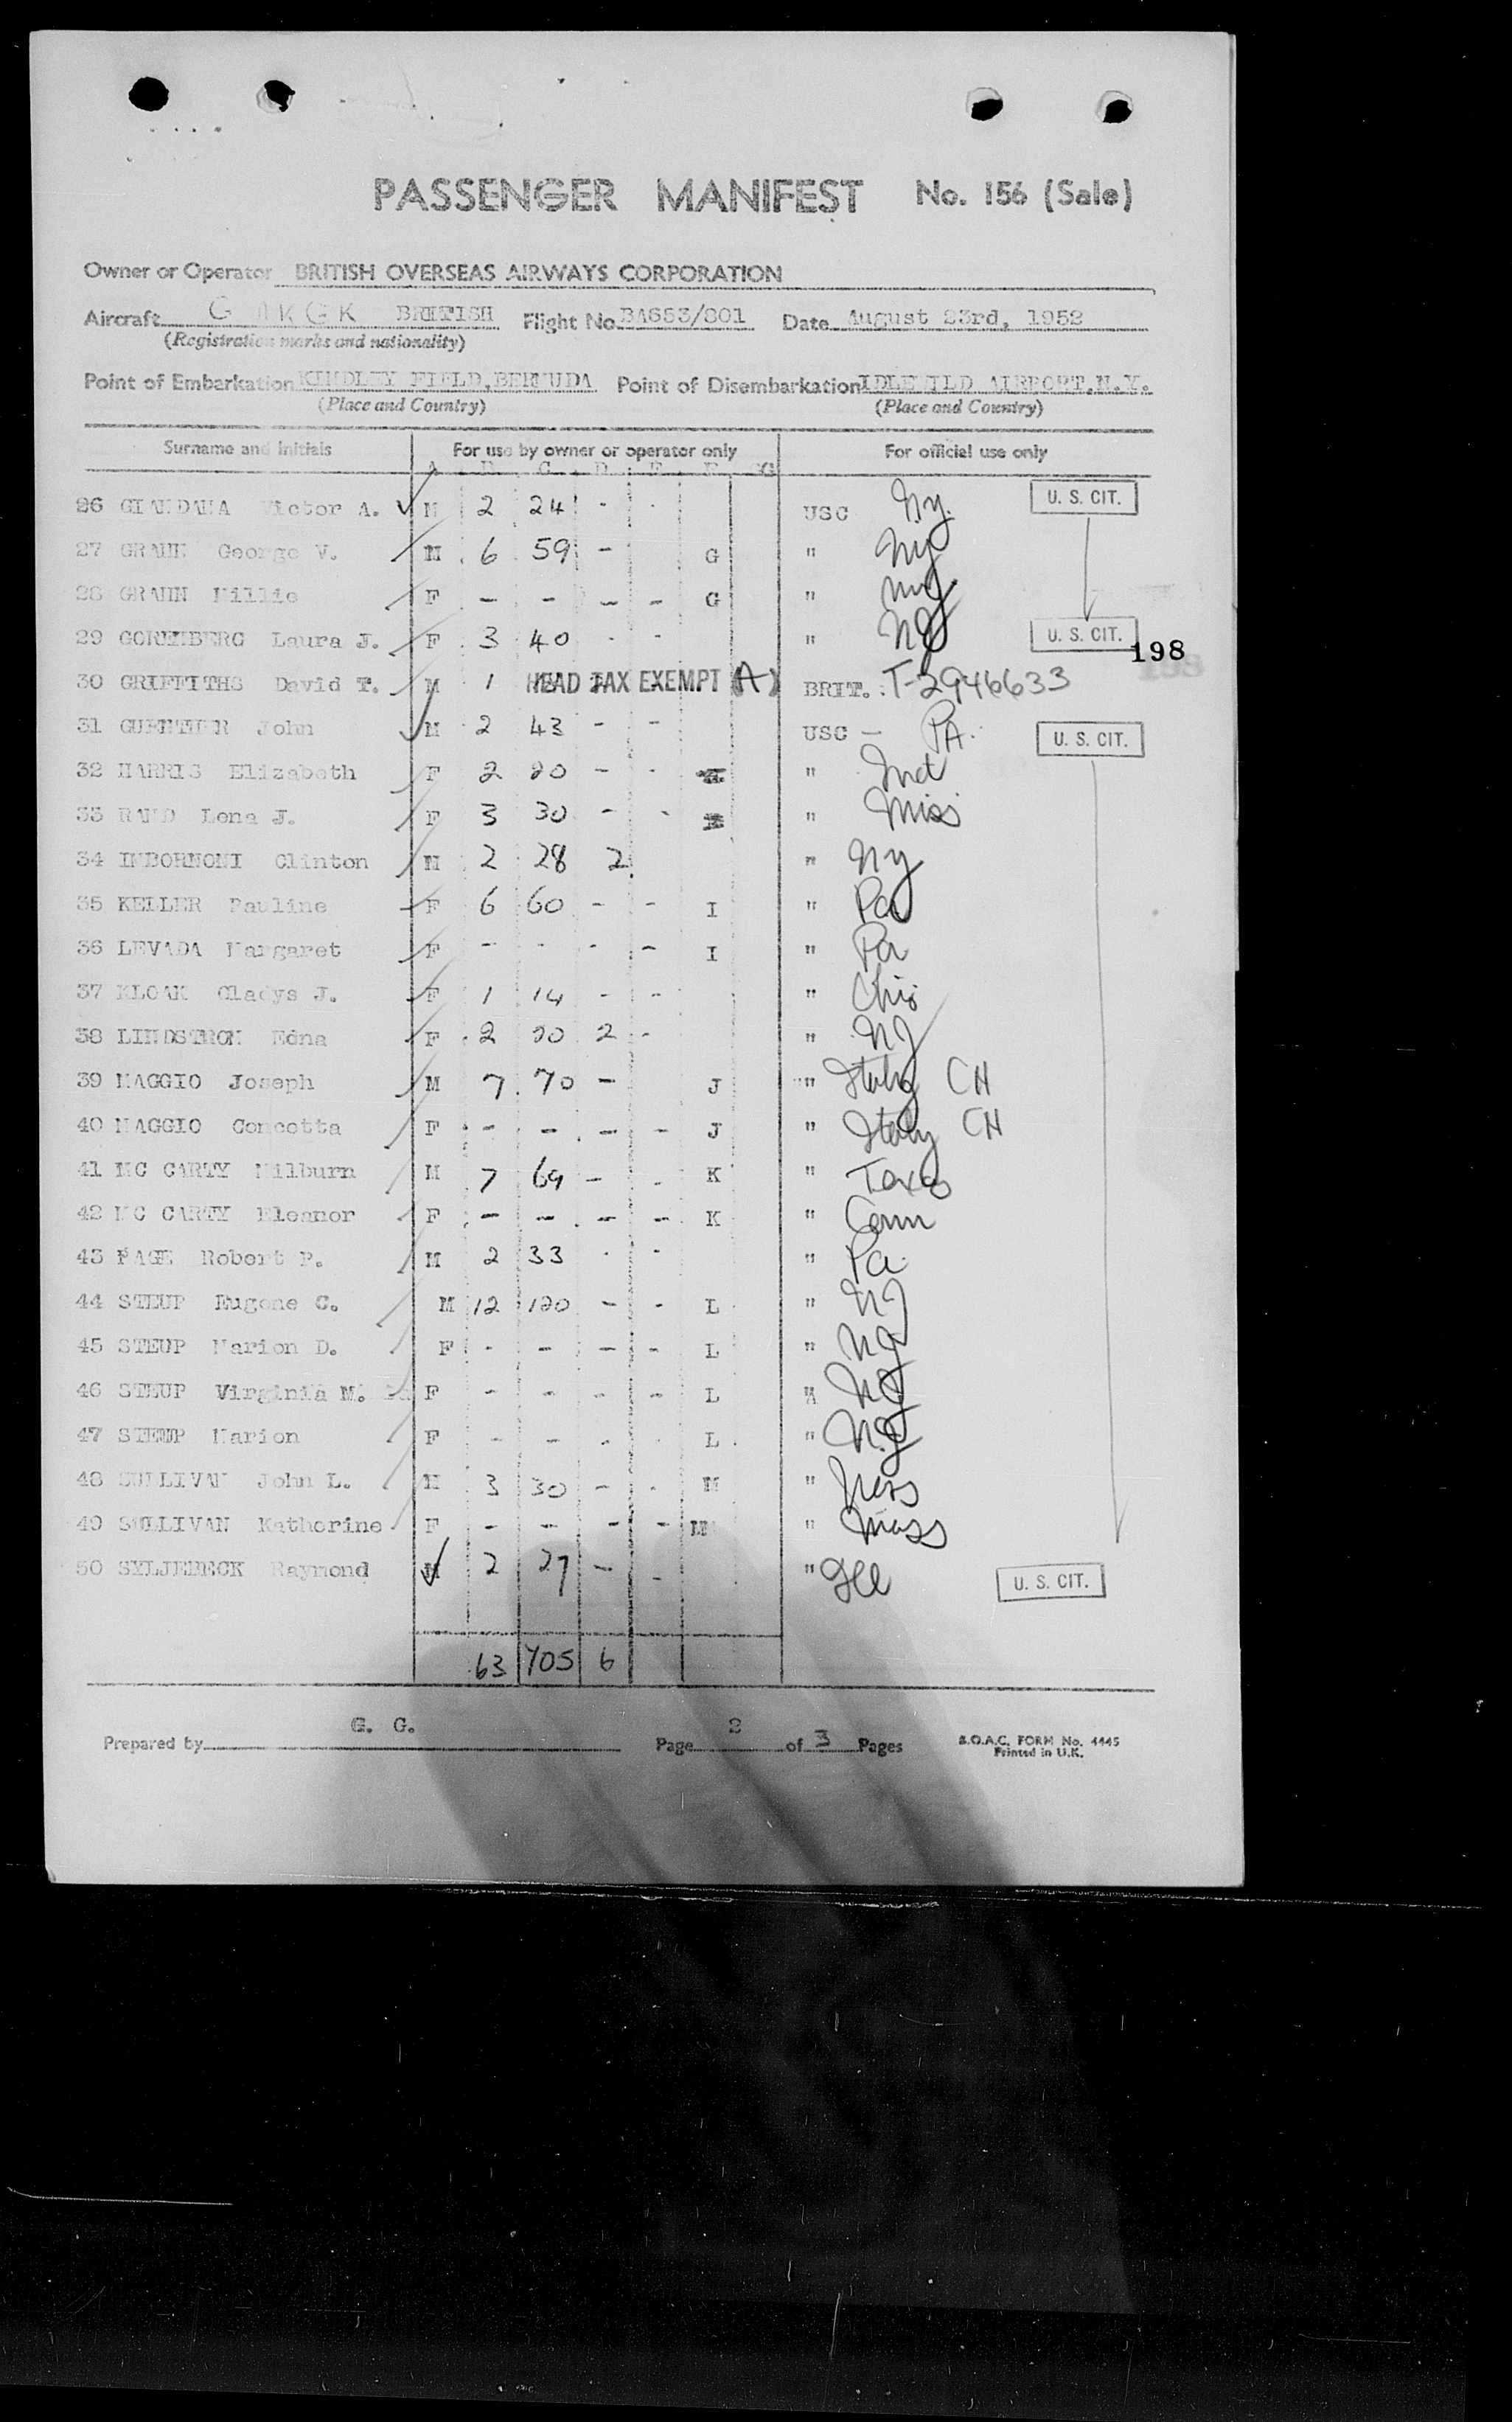 PASSENGER MANIFEST No. 156 (Sale)
Owner or Operator BRITISH OVERSEAS AIRWAYS CORPORATION
Aircraft G AKGK BRITISH Flight No. BA653/801 Date August 23rd, 1952
(Registration marks and nationality)
Point of Embarkation KINDLEY FIELD, BERMUDA Point of Disembarkation IDLEWILD AIRPORT, N.Y.
(Place and Country) (Place and Country)
Surname and Initials For use by owner or operator only For official use only
A B C D E F G
26 GIANDANA Victor A. M 2 24 - - USC N.y. U. S. CIT.
27 GRAHN George V. M 6 59 - G " Ny
28 GRAHN Millie F - - - - G " Ny
29 GORENBERG Laura J. F 3 40 - - " NJ U. S. CIT.
198
30 GRIFFITHS David T. M 1 HEAD TAX EXEMPT (A) BRIT. T-2946633
31 GUENTHER John M 2 43 - - USC - PA. U. S. CIT.
32 HARRIS Elizabeth F 2 20 - - " Ind
33 HAND Lena J. F 3 30 - - " Miss
34 IMBORNONI Clinton M 2 28 2 " Ny
35 KELLER Pauline F 6 60 - - I " Pa
36 LEVADA Margaret F - - - - I " Pa
37 KLOAK Gladys J. F 1 14 - - " Ohio
38 LINDSTROM Edna F 2 20 2 - " NJ
39 MAGGIO Joseph M 7 70 - J " Italy CH
40 MAGGIO Concetta F - - - - J " Italy CH
41 MC CARTY Milburn M 7 69 - - K " Texas
42 MC CARTY Eleanor F - - - - K " Conn
43 PAGE Robert P. M 2 33 - - " Pa.
44 STEUP Eugene C. M 12 120 - - L " NJ
45 STEUP Marion D. F - - - - L " NJ
46 STEUP Virginia M. F - - - - L " NJ
47 STEUP Marion F - - - - L " N.J
48 SULLIVAN John L. M 3 30 - - M " Mass
49 SULLIVAN Katherine F - - - - M " Mass
50 SYLJEBECK Raymond M 2 27 - - " Ill U. S. CIT.
63 705 6
Prepared by G. G. Page 2 of 3 Pages B.O.A.C. FORM No. 4445
Printed in U.K.